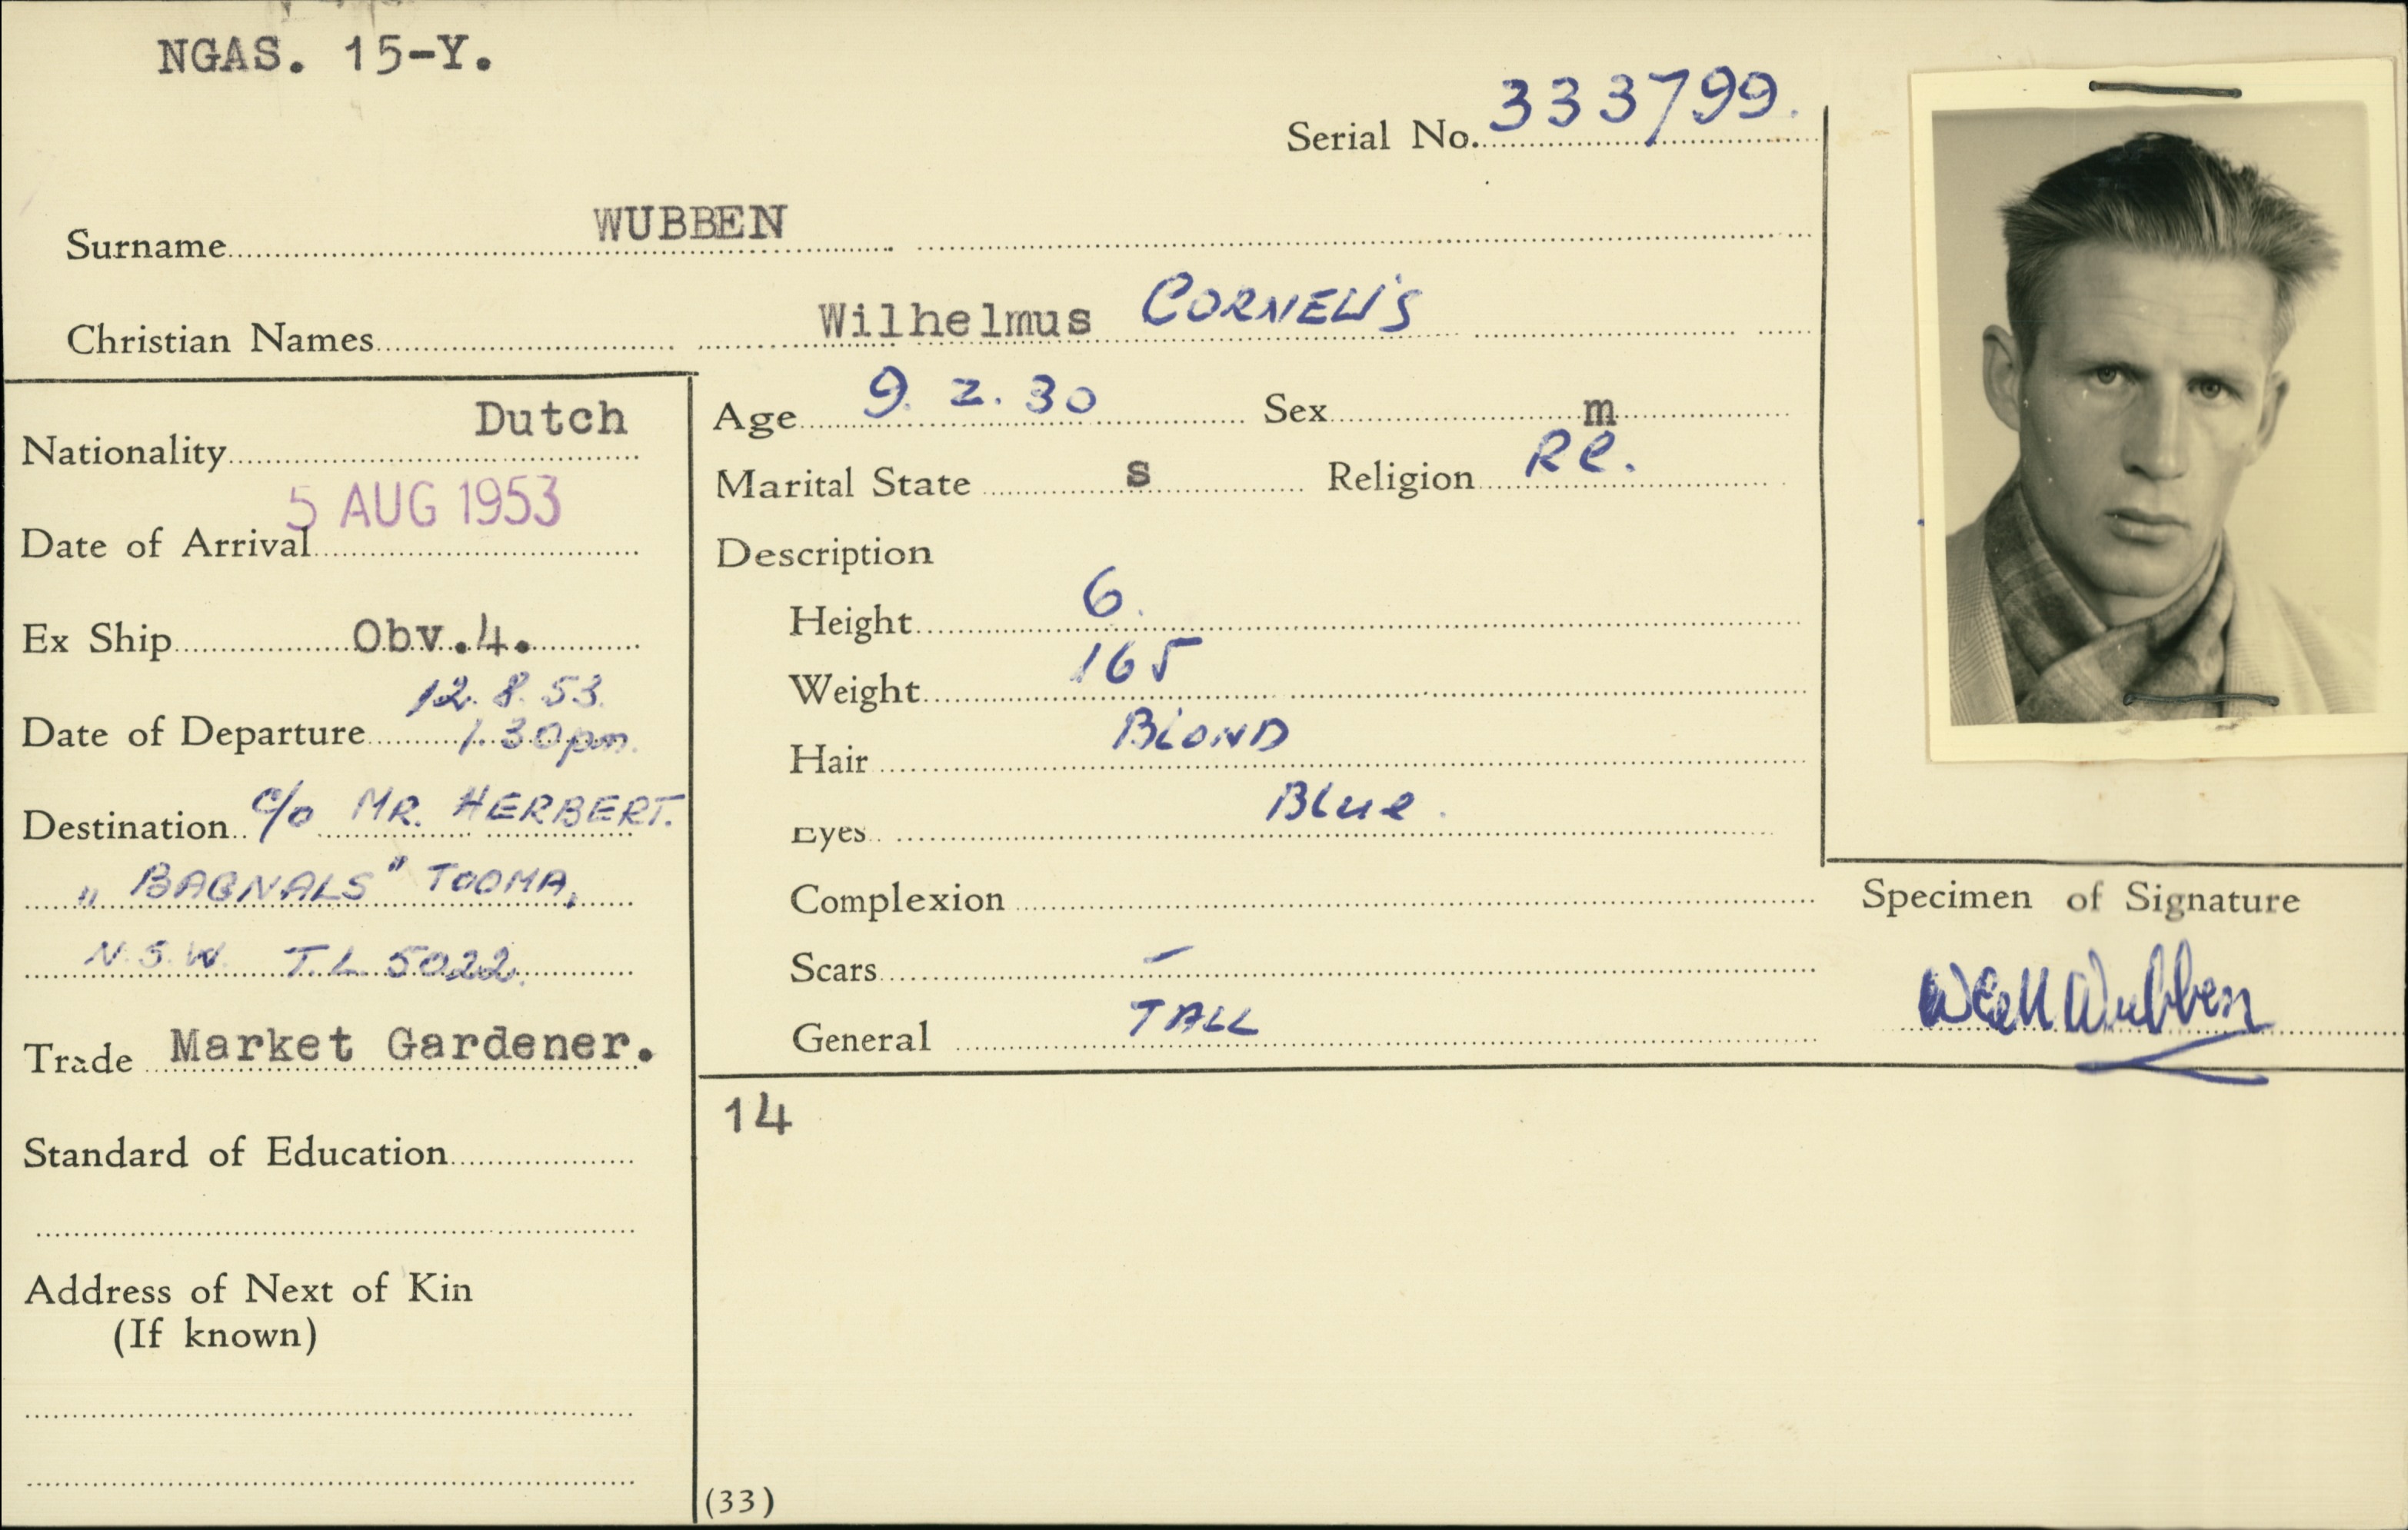 NGAS. 15-Y.
Serial No. 333799.
Surname WUBBEN
Christian Names Wilhelmus CORNELIS
Nationality Dutch
Date of Arrival 5 AUG 1953
Ex Ship Obv.4.
Date of Departure 12.8.53.
1.30pm.
Destination C/o MR. HERBERT.
" BAGNALS" TOOMA,
N.S.W. T.L 5022.
Trade Market Gardener.
Standard of Education
Address of Next of Kin
(If known)
Age 9.2.30 Sex m
Marital State s Religion RC.
Description
Height 6.
Weight 165
Hair BLOND
Eyes Blue.
Complexion
Scars –
General TALL
14
(33)
Specimen of Signature
Wubben